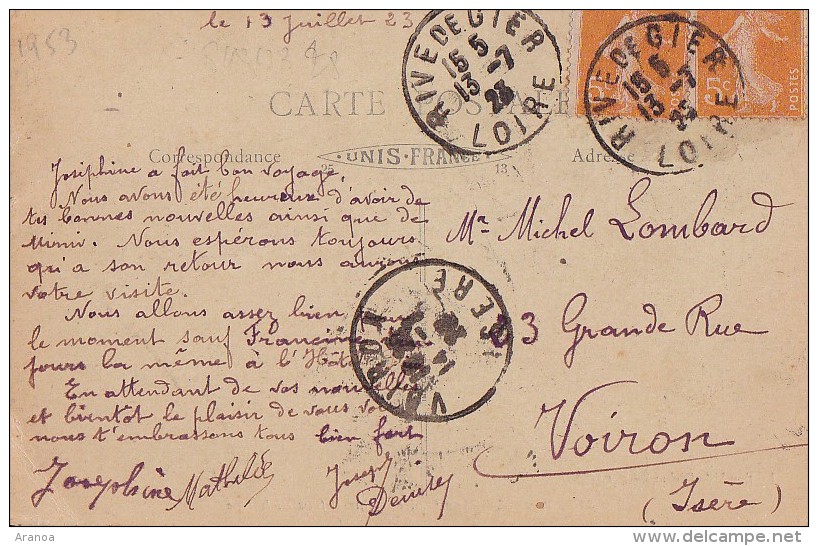 le 13 Juillet 23
1953
CARTE POSTALE
RIVE DE GIER
15 5
13 -7
23
LOIRE
RIVE DE GIER
15 5
13 -7
LOIRE
5c
POSTES
Correspondance
UNIS-FRANCE
25
13
Adresse
Joséphine a fait bon voyage.
Nous avons été heureux d'avoir de
tes bonnes nouvelles ainsi que de
Mimi. Nous espérons toujours
qu'a son retour nous aurons
votre visite.
Nous allons asser bien pour
le moment sauf Francine
jours la même à l'Hôt
En attendant de vos nouvelles
et bientôt le plaisir de vous voir
nous t'embrassons tous bien fort
Josephine Mathilde Joseph
Denise
Mr Michel Lombard
23 Grande Rue
Voiron
(Isère)
VOIRON
ISERE
Aranoa
delcampe.net